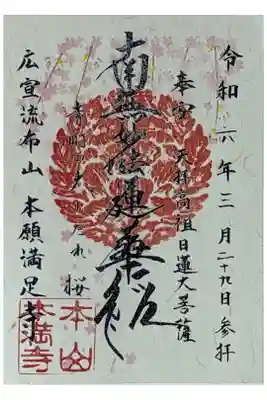 令和六年三月二十九日参拝
奉安 天拝高祖日蓮大菩薩
南無妙法蓮華経
しだれ桜
広宣流布山 本願満足寺
本山
本満寺